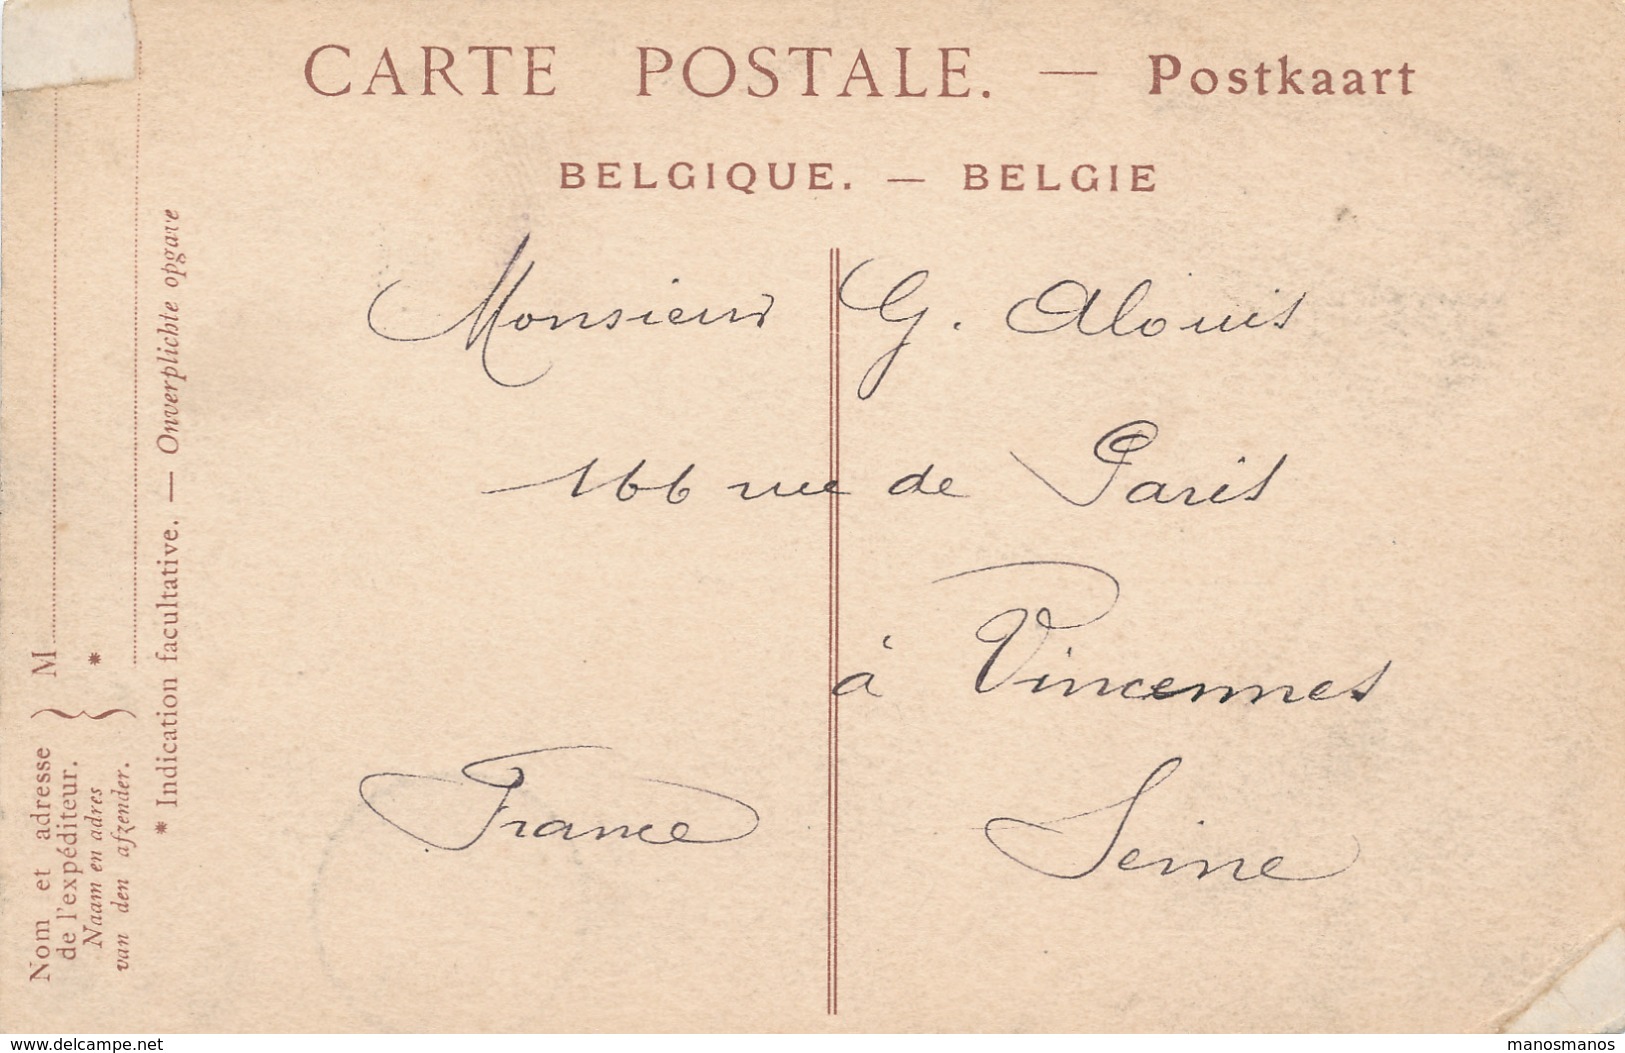 CARTE POSTALE. — Postkaart
BELGIQUE. — BELGIE
Monsieur G. Alouis
166 rue de Paris
à Vincennes
France Seine
Nom et adresse
de l'expéditeur.
Naam en adres
van den afzender.
M
*
* Indication facultative. — Onverplichte opgave
www.delcampe.net
manosmanos